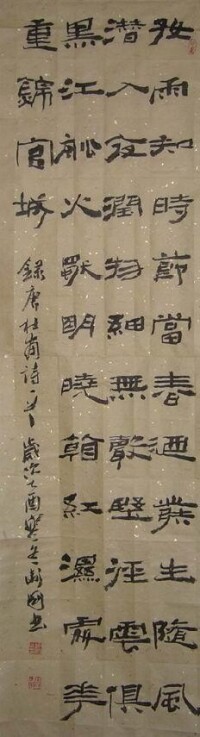 好雨知時節當春迺發生隨風
潛入夜潤物細無聲野徑雲俱
黑江船火獨明曉看紅濕處花
重錦官城
錄唐杜甫詩一首歲次乙酉寒冬書